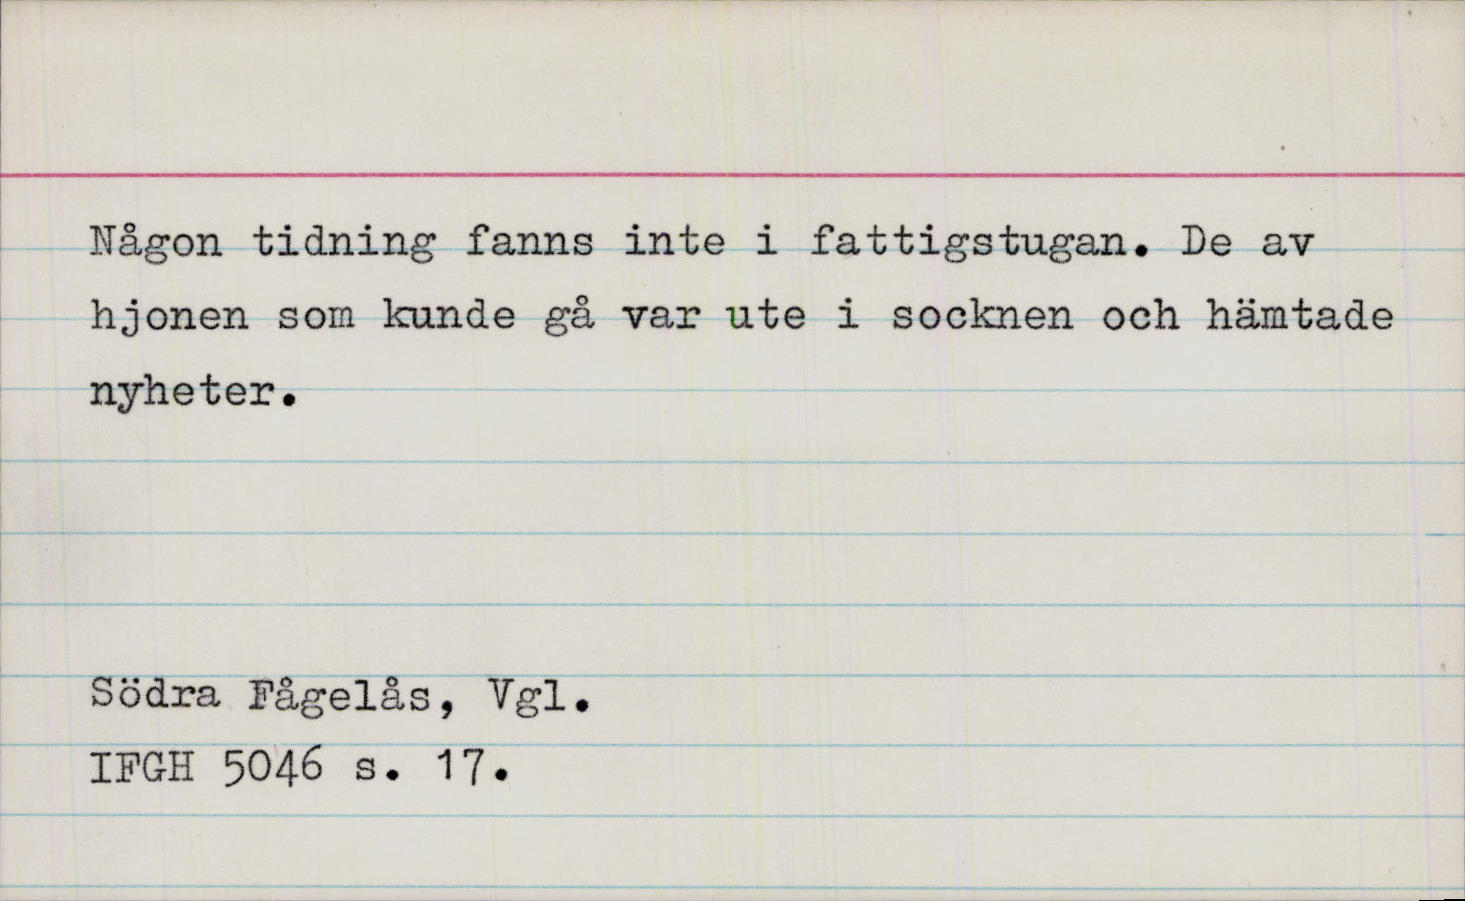 Någon tidning fanns inte i fattigstugan. De av
hjonen som kunde gå var ute i socknen och hämtade
nyheter.
Södra Fågelås, Vgl.
IFGH 5046 s. 17.